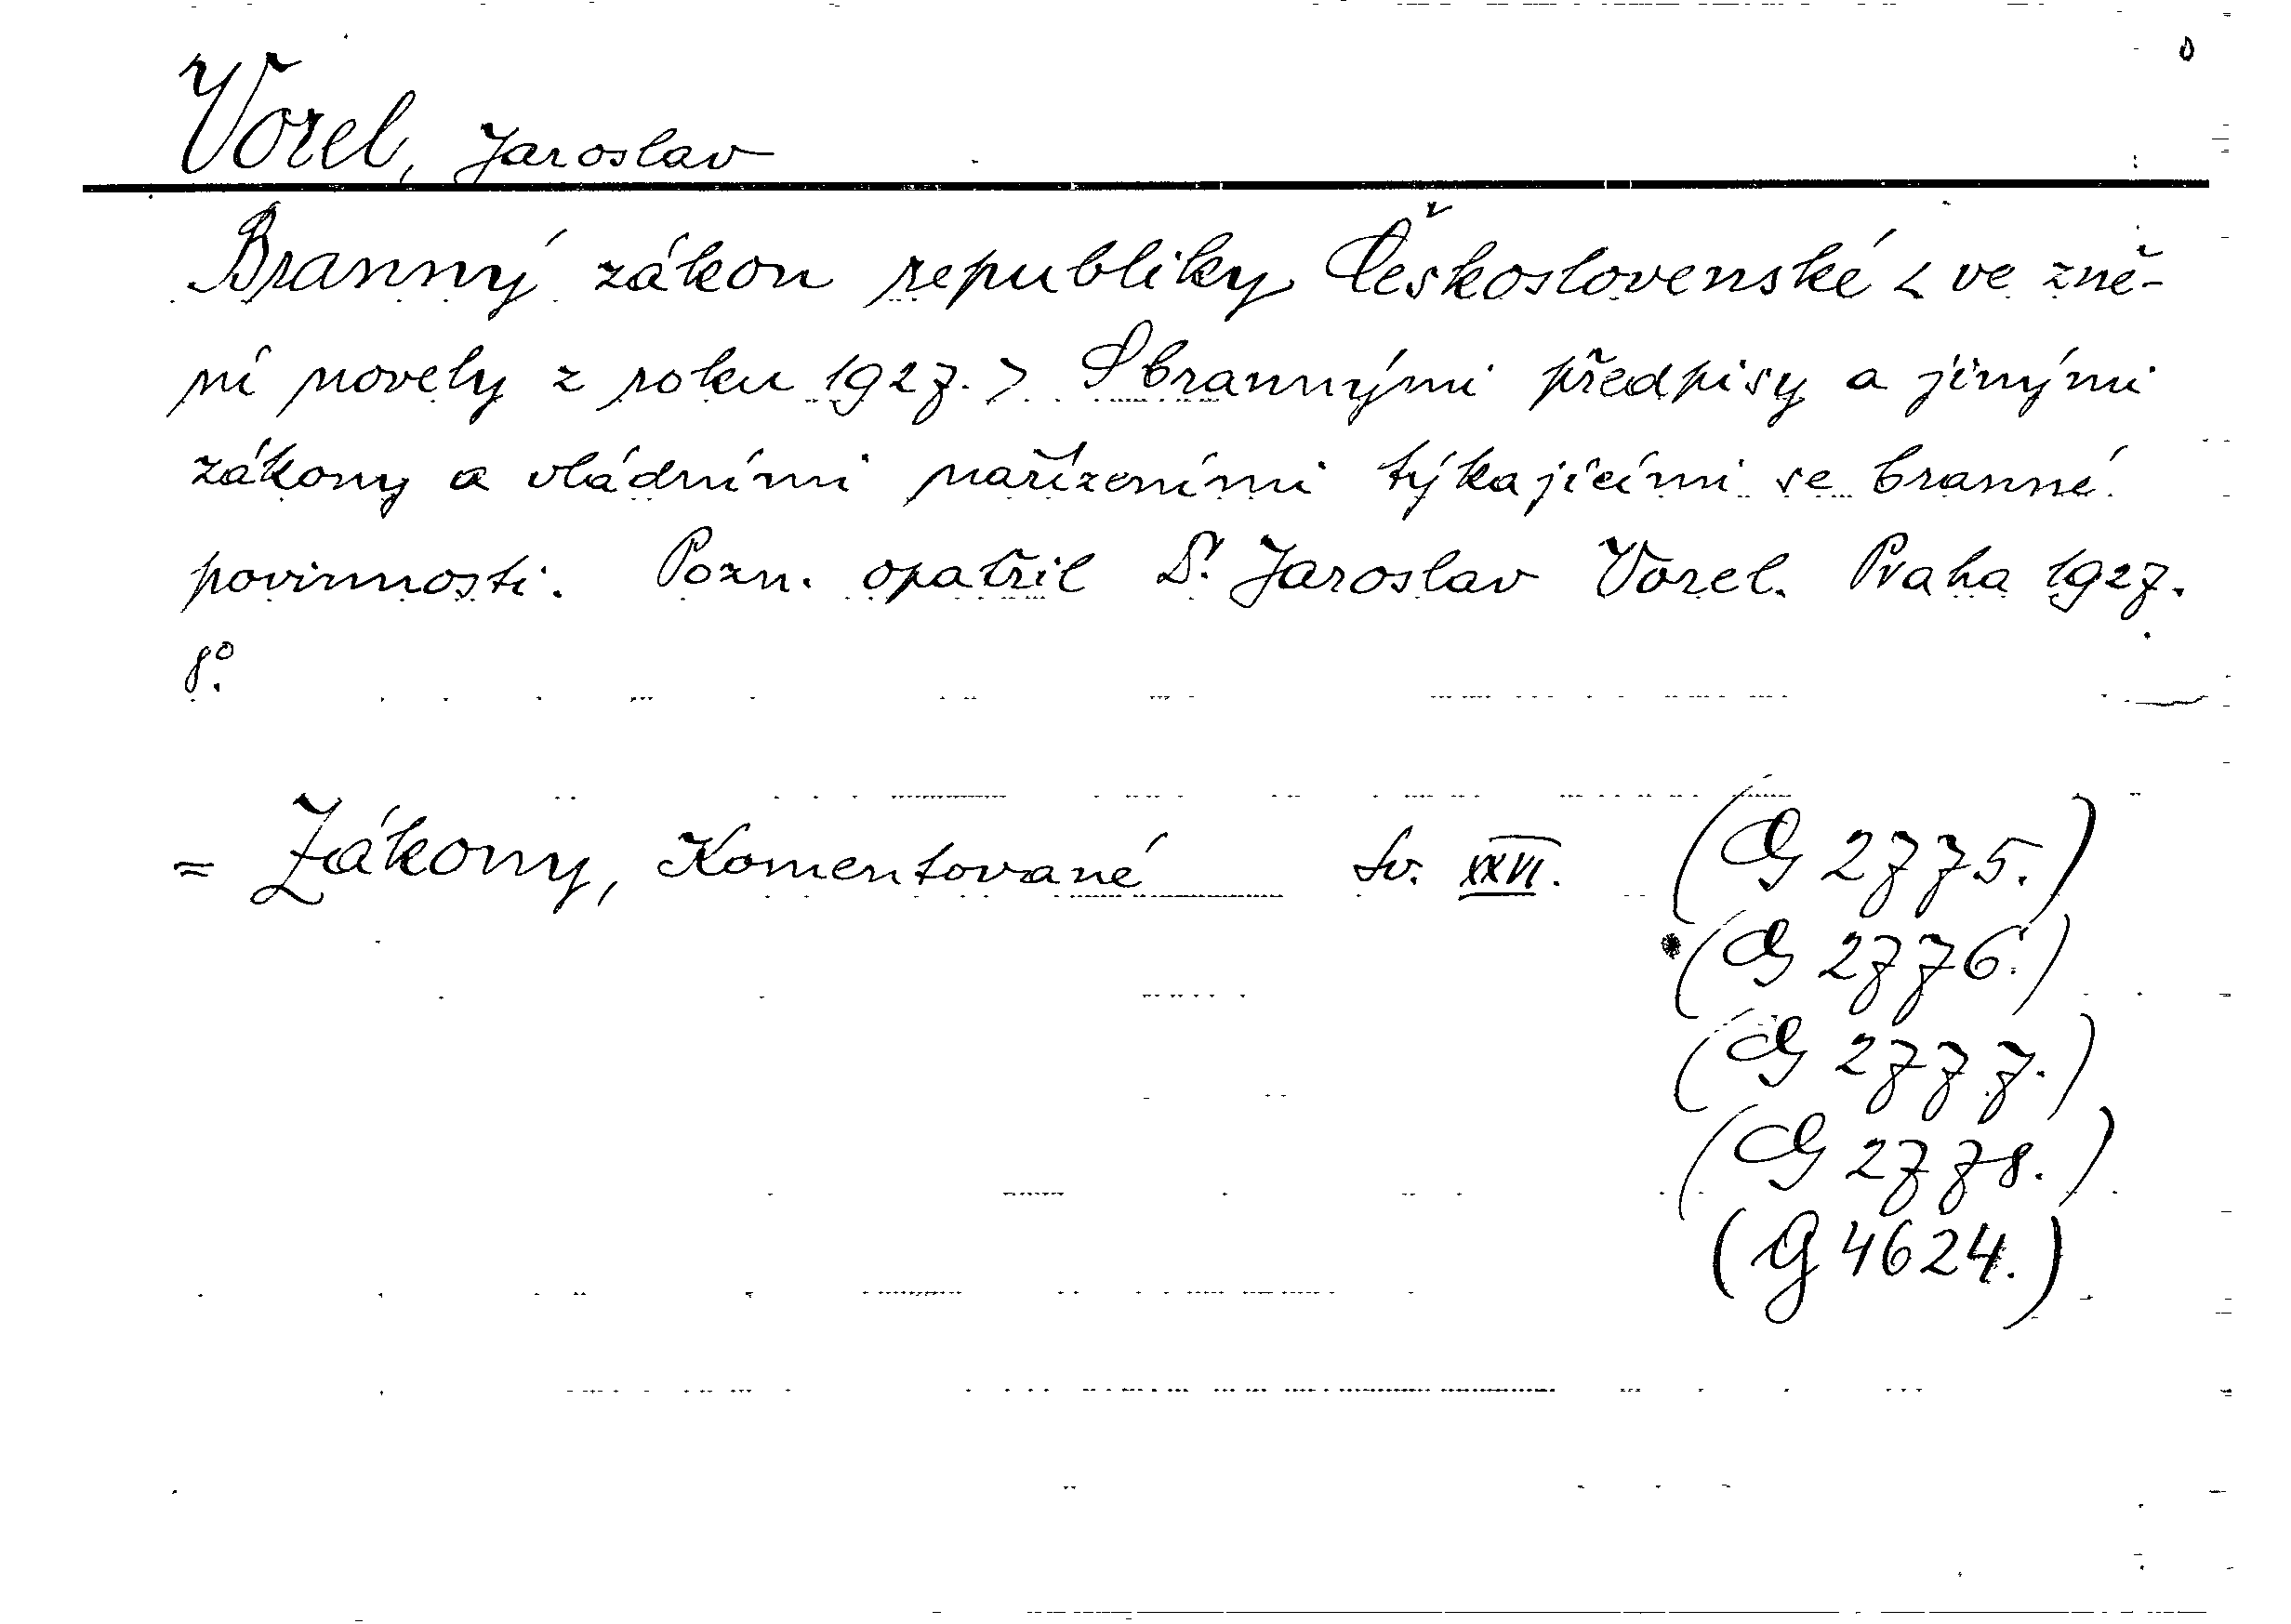 Vorel, Jaroslav
Branný zákon republiky Československé < ve zně-
ní novely z roku 1927. > S brannými předpisy a jinými
zákony a vládními nařízeními týkajícími se branné
povinnosti. Pozn. opatřil Dr. Jaroslav Vorel. Praha 1927.
8°.
= Zákony, Komentované Sv. XXVI. (G 2775.)
(G 2776.)
(G 2777.)
(G 2778.)
(G 4624.)